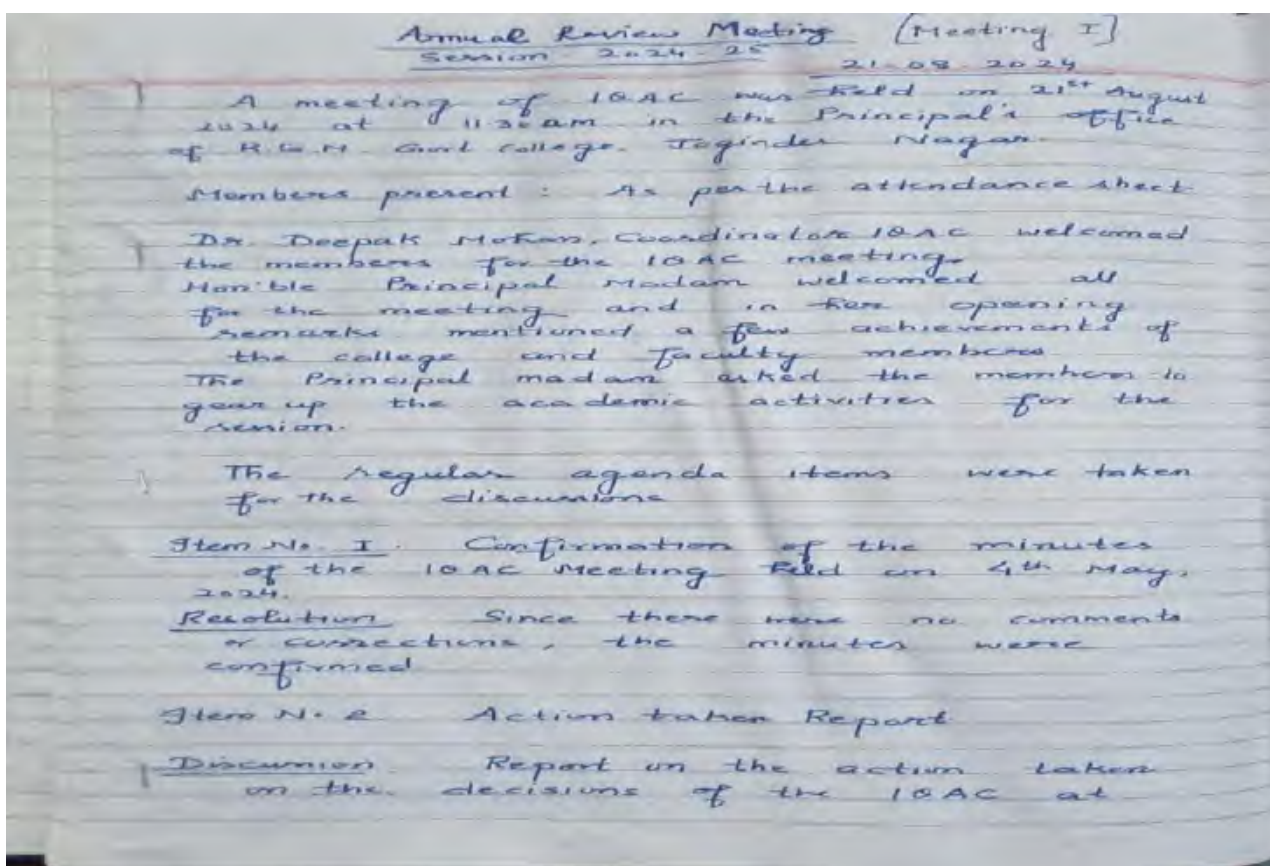 Annual Review Meeting (Meeting I)
Session 2024 25
21-08-2024
A meeting of IQAC was held on 21st August
2024 at 11:30 am in the Principal's office
of R.G.M. Govt College. Joginder Nagar.
Members present : As per the attendance sheet
Dr. Deepak Mohan, Coordinator IQAC welcomed
the members for the IQAC meeting.
Hon'ble Principal Madam welcomed all
for the meeting and in her opening
remarks mentioned a few achievements of
the college and faculty members
The Principal madam asked the members to
gear up the academic activities for the
session.
The regular agenda items were taken
for the discussions
Item No. I. Confirmation of the minutes
of the IQAC Meeting held on 4th May,
2024.
Resolution Since there were no comments
or corrections, the minutes were
confirmed
Item No. 2 Action taken Report
Discussion Report on the action taken
on the decisions of the IQAC at